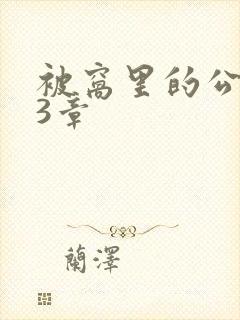 被窝里的公
3章
蘭澤